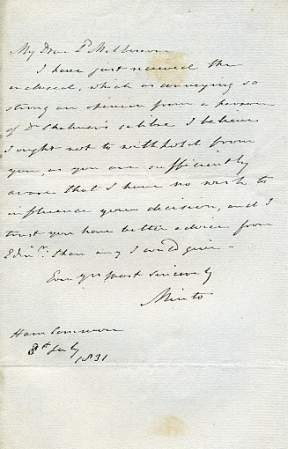 My Dear Ld Melbourne
I have just received the
enclosed, which as conveying so
strong an opinion from a person
of Dr calibre I believe
I ought not to withhold from
you, as you are sufficiently
aware that I have no wish to
influence your decision, and I
trust you have better advice from
Edinr. than any I would give.
Ever yrs most sincerely
Minto
Ham Common
8th July
1831